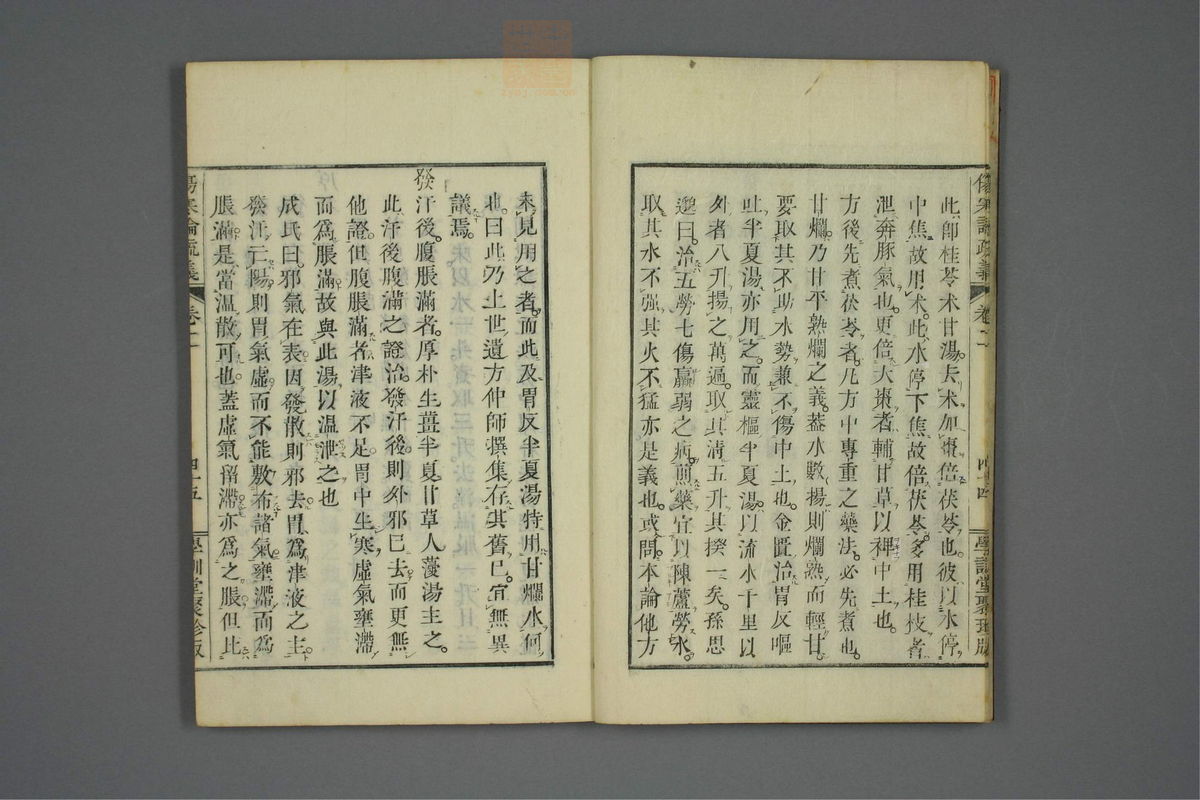 此即桂苓朮甘湯去朮加棗倍茯苓也彼以水停
中焦故用朮此水停下焦故倍茯苓多用桂枝者
泄奔豚氣也更倍大棗者輔甘草以裨中土也
方後先煮茯苓者凡方中專重之藥法必先煮也
甘爛乃甘平熟爛之義蓋水數揚則爛熟而輕甘
要取其不助水勢兼不傷中土也金匱治胃反嘔
吐半夏湯亦用之而靈樞半夏湯以流水千里以
外者八升揚之萬遍取其清五升其揆一矣孫思
邈曰治五勞七傷羸弱之病煎藥宜以陳蘆勞水
取其水不强其火不猛亦是義也或問本論他方
傷寒論疏義 卷二 四十四 學訓堂聚珍版
未見用之者而此及胃反半夏湯特用甘爛水何
也曰此乃上世遺方仲師撰集存其舊已宜無異
議焉
發汗後腹脹滿者厚朴生薑半夏甘草人蓡湯主之
此汗後腹滿之證治發汗後則外邪已去而更無
他證但腹脹滿者津液不足胃中生寒虛氣壅滯
而爲脹滿故與此湯以温泄之也
成氏曰邪氣在表因發散則邪去胃爲津液之主
發汗亡陽則胃氣虛而不能敷布諸氣壅滯而爲
脹滿是當温散可也蓋虛氣留滯亦爲之脹但比
傷寒論疏義 卷二 四十五 學訓堂聚珍版